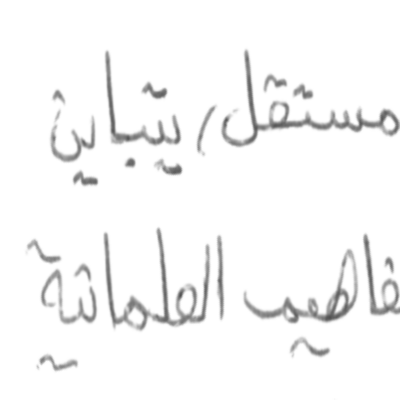 مستقل، يتباين
فاهيم العلمانية